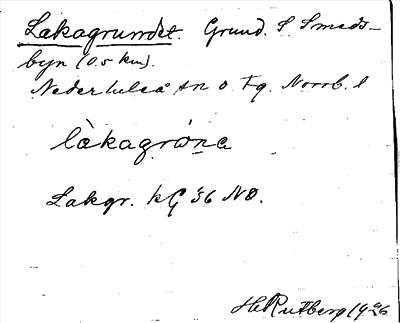 Lakagrundet. Grund. S Smeds-
byn (0.5 km).
Nederluleå sn o tg. Norrb. l
làkagròna
Lakgr. kG 36 NO.
H Rutberg 1926